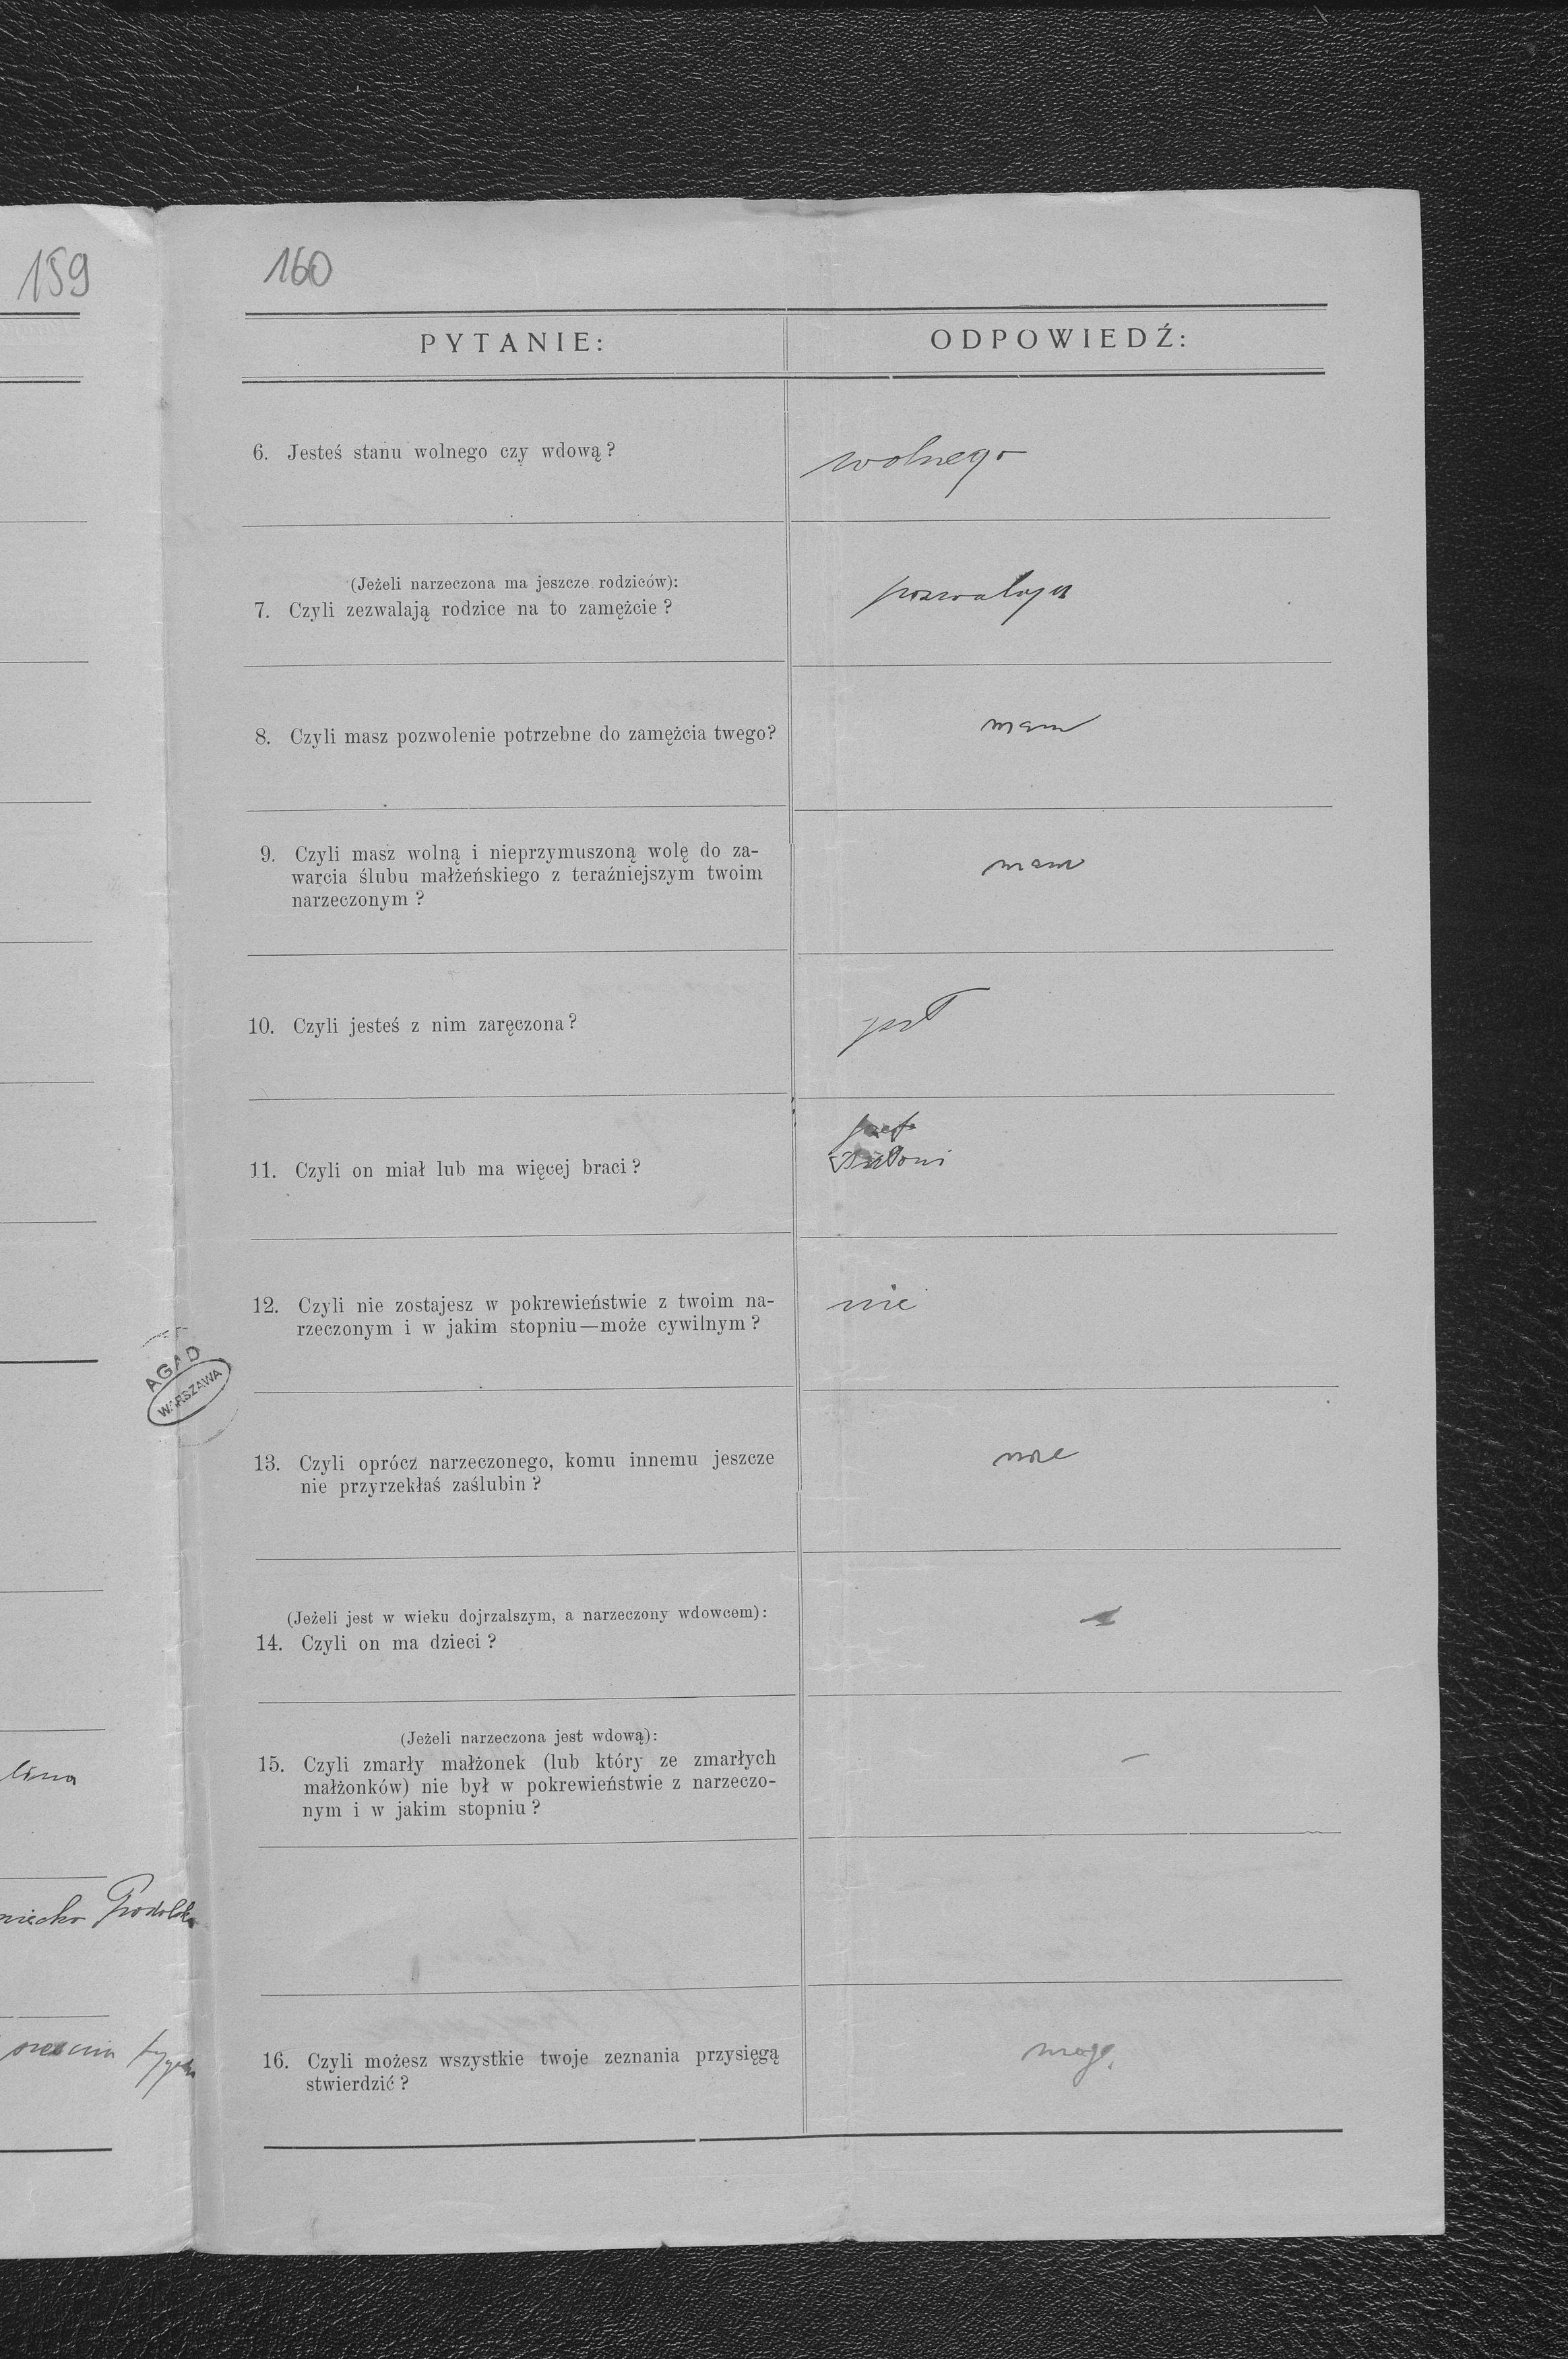 159
lina
160
PYTANIE:
ODPOWIEDŹ:
6. Jesteś stanu wolnego czy wdową?
wolnego
(Jeżeli narzeczona ma jeszcze rodziców):
7. Czyli zezwalają rodzice na to zamężcie?
pozwalają
8. Czyli masz pozwolenie potrzebne do zamężcia twego?
mam
9. Czyli masz wolną i nieprzymuszoną wolę do za-
warcia ślubu małżeńskiego z teraźniejszym twoim
narzeczonym?
mam
10. Czyli jesteś z nim zaręczona?
11. Czyli on miał lub ma więcej braci?
Józef
Antoni
12. Czyli nie zostajesz w pokrewieństwie z twoim na-
rzeczonym i w jakim stopniu—może cywilnym?
nie
13. Czyli oprócz narzeczonego, komu innemu jeszcze
nie przyrzekłaś zaślubin?
nie
(Jeżeli jest w wieku dojrzalszym, a narzeczony wdowcem):
14. Czyli on ma dzieci?
(Jeżeli narzeczona jest wdową):
15. Czyli zmarły małżonek (lub który ze zmarłych
małżonków) nie był w pokrewieństwie z narzeczo-
nym i w jakim stopniu?
—
16. Czyli możesz wszystkie twoje zeznania przysięgą
stwierdzić?
mogę.
AGAD
WARSZAWA